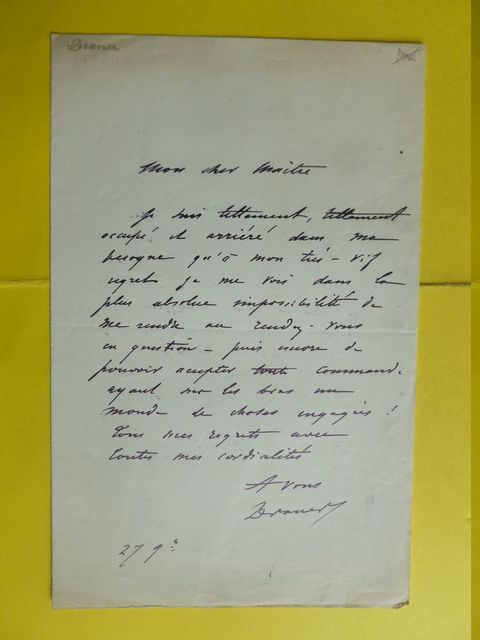 Draner
Mon cher Maître
Je suis tellement, tellement
occupé et arriéré dans ma
besogne qu'à mon très-vif
regret je me vois dans la
plus absolue impossibilité de
me rendre au rendez-vous
en question - puis encore de
pouvoir accepter toute command.
ayant sur les bras un
monde de choses engagées !
Tous mes regrets avec
toutes mes cordialités
A vous
Draner
27 9e